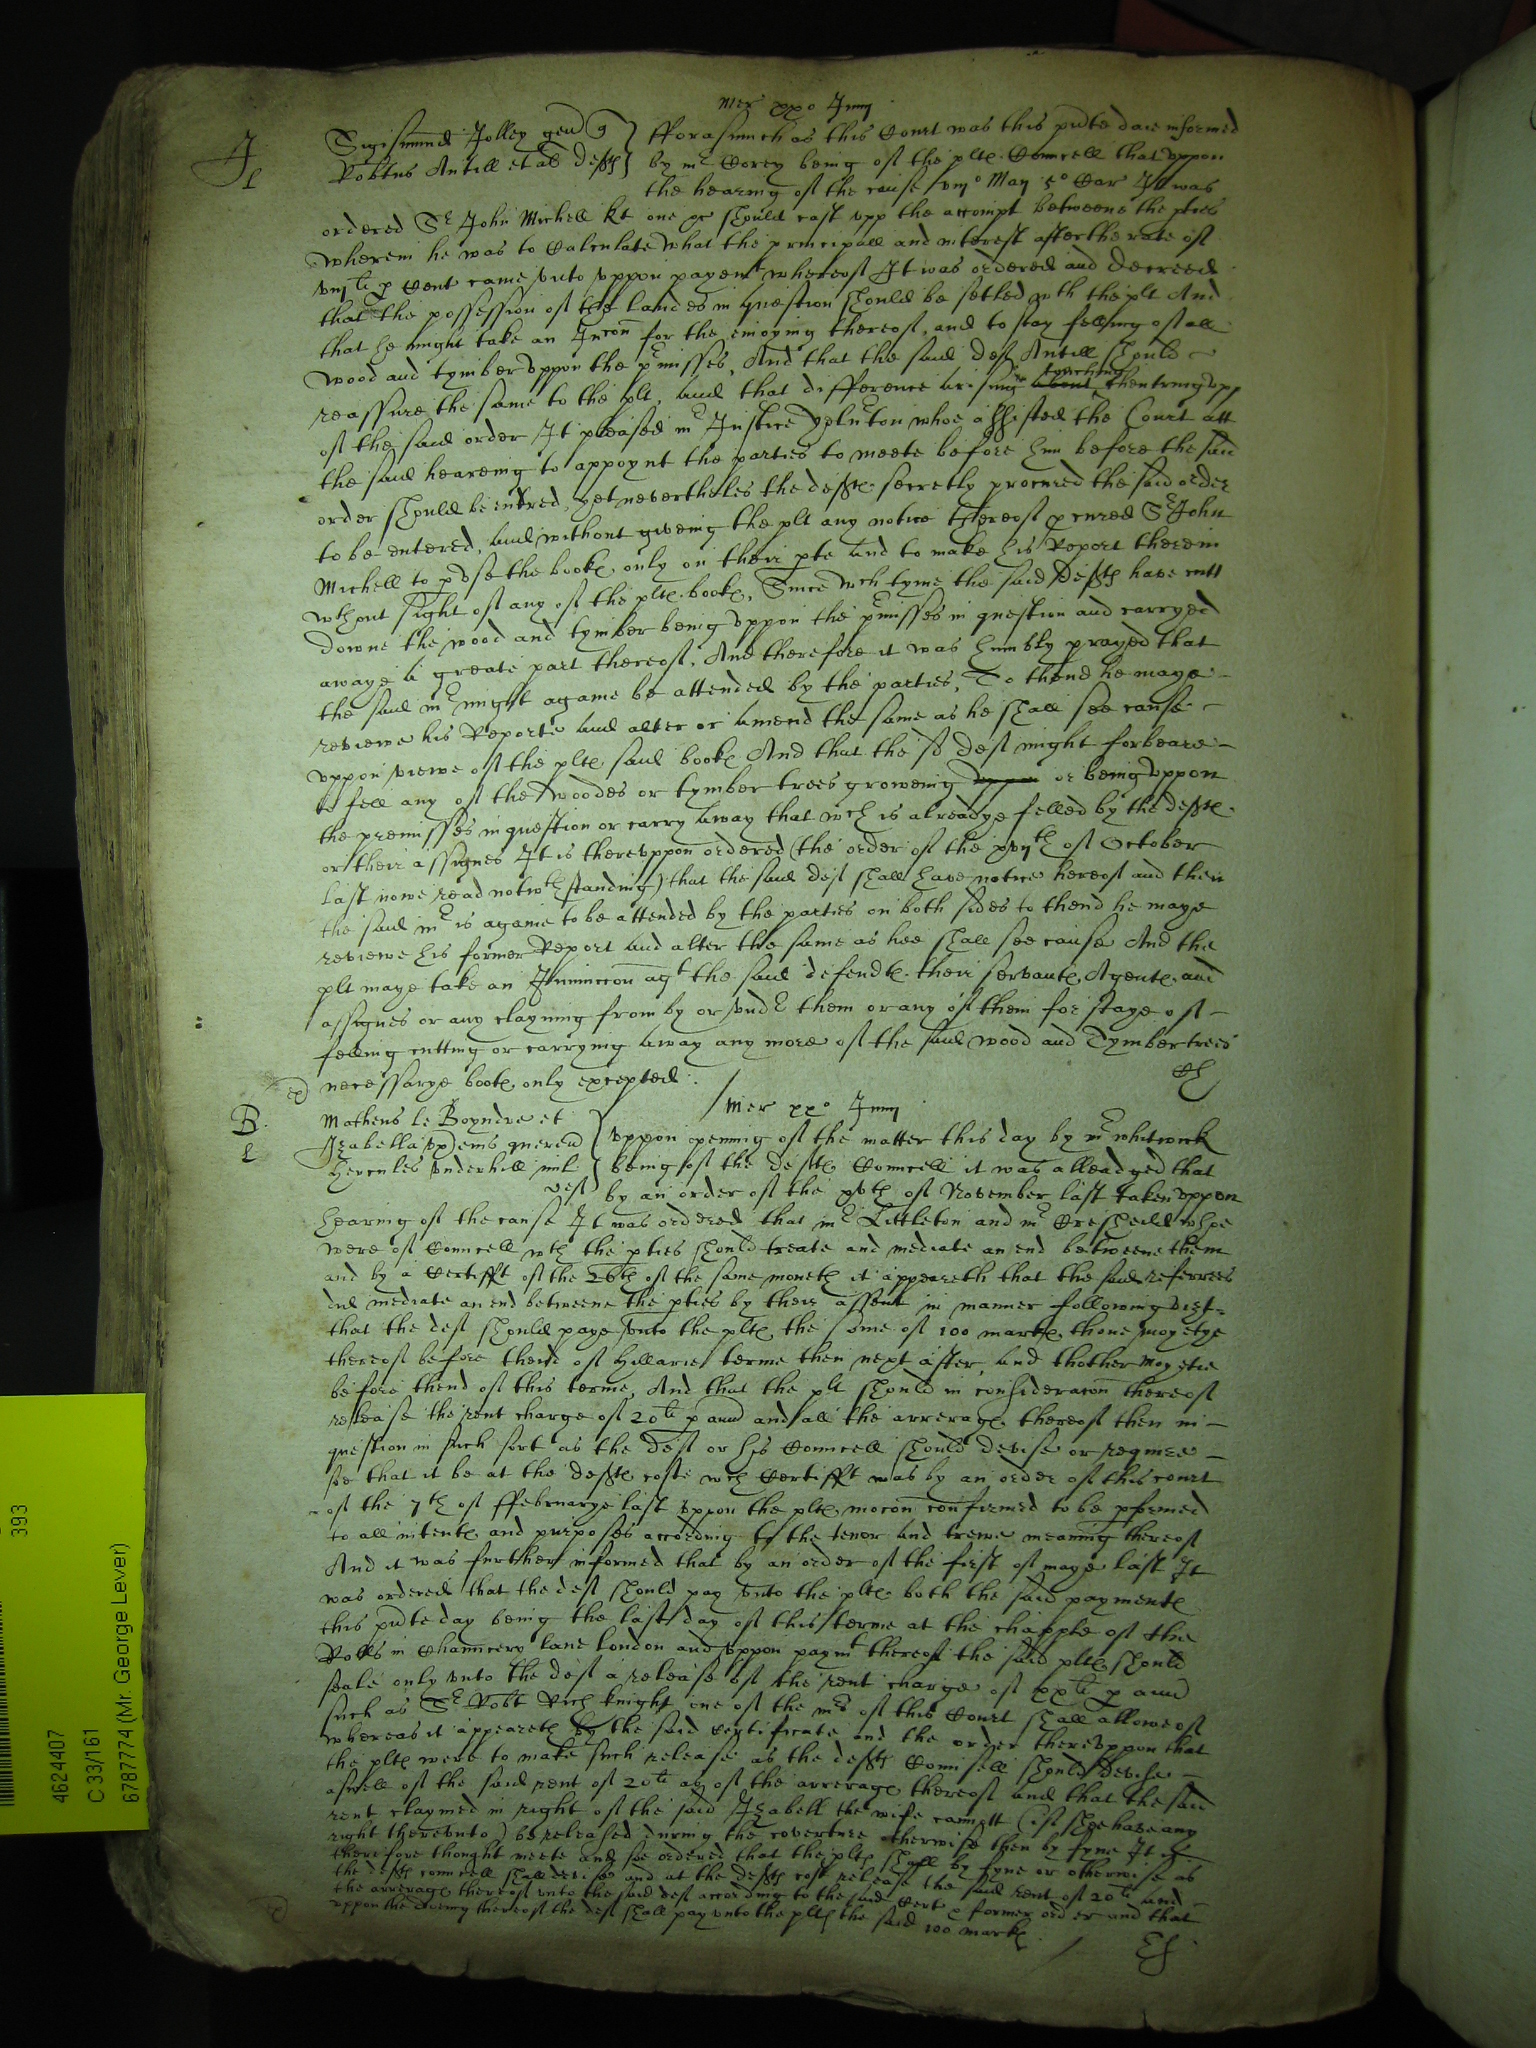 Mer xxo Junij
J
Sigismund Jolley gen q fforasmuch as this Court was this pnte daie informed
Robtus Antill et al defh by mr Corey being of the plts Councell that uppon
the hearing of the cause viijo May 5o Car It was
ordered Sr John Michell kt one &c should cast upp the accompt betweene the pties
wherein he was to Calculate what the principall and interest after the rate of
viijli p Cent came unto uppon payemt whereof It was ordered and decreed
that the possession of the landes in question should be setled wth the plt And
that he might take an Incon for the enioying thereof, and to stay felling of all
wood and tymber uppon the pmisses, And that the said deft Antill should
reassure the same to the plt, and that difference arising about touching thentring upp
of the said order It pleased mr Justice Yelverton whoe assisted the Court att
the said heareing to appoynt the parties to meete before him before the said
order should be entred, yet neverthelesse the defts secretly procured the said order
to be entered, and without giveing the plt any notice thereof pcured Sr John
Michell to puse the bookes only on their pte and to make his Report therein
wthout sight of any of the plts bookes, Since wch tyme the said defts have cutt
downe the wood and tymber being uppon the pmisses in question and carryed
awaye a greate part thereof, And therefore it was humbly prayed that
the said mr might againe be attended by the parties, To thend he maye
reviewe his Reporte and alter or amend the same as he shall see cause
uppon viewe of the plts said bookes And that the sd deft might forbeare
to fell any of the woodes or tymber trees groweing uppon or being uppon
the premisses in question or carry away that wch is alreadye felled by the defts
or their assignes It is thereuppon ordered (the order of the xviijth of October
last nowe read notwthstanding) that the said deft shall have notice hereof and then
the said mr is againe to be attended by the parties on both sides to thend he maye
reviewe his former Report and alter the same as hee shall see cause And the
plt maye take an Iniunccon agt the said defendts their servants Agents and
assignes or any clayming from by or undr them or any of them for staye of
felling cutting or carrying away any more of the said wood and Tymber trees
necessarye boots only excepted
B
Mer xxo Junij
Matheus le Boyndre et
Izabella ux eius queren uppon opening of the matter this day by mr whitwick
Hercules Underhill mil being of the defts Councell it was alleadged that
deft by an order of the xvth of November last taken uppon
hearing of the cause It was ordered that mr Littleton and mr Cresheild whoe
were of Councell wth the pties should treate and mediate an end betweene them
and by a Certifft of the 26th of the same moneth it appeareth that the said referrees
did mediate an end betweene the pties by their assent in manner following vizt
that the deft should paye unto the plts the some of 100 markes thone moyetye
thereof before thend of Hillarie terme then next after, and thother moyetie
before thend of this terme, And that the plt should in consideracon thereof
release the rent charge of 20li p ann and all the arrerages thereof then in
question in such sort as the deft or his Councell should devise or require
so that it be at the defts costs wch Certifft was by an order of this court
of the 7th of ffebruarye last uppon the plts mocon confirmed to be pformed
to all intents and purposes according to the tenor and trewe meaning thereof
And it was further informed that by an order of the first of maye last It
was ordered that the deft should pay unto the plts both the said payments
this pnte day being the last day of this terme at the chapple of the
Rolls in Chauncery lane London and uppon paymt thereof the said plts should
seale only unto the deft a release of the rent charge of xxli p ann
such as Sr Robt Rich knight one of the mrs of this Court shall allowe of
whereas it appeareth by the said certificate and the order thereuppon that
the plts were to make such release as the defts Counsell should devise
aswell of the said rent of 20li as of the arrerages thereof and that the said
rent claymed in right of the said Izabell the wife cannott (if shee have any
right thereunto) be released during the coverture otherwise then by fyne It is
therefore thought meete and soe ordered that the plts shall by fyne or otherwise as
the defts councell shall devise and at the defts cost release the said rent of 20li and
the arrerages thereof unto the said deft according to the said Cert & former order and that
uppon the doeing thereof the deft shall pay unto the plts the said 100 markes
393
4624407
C 33/161
6787774 (Mr. George Lever)